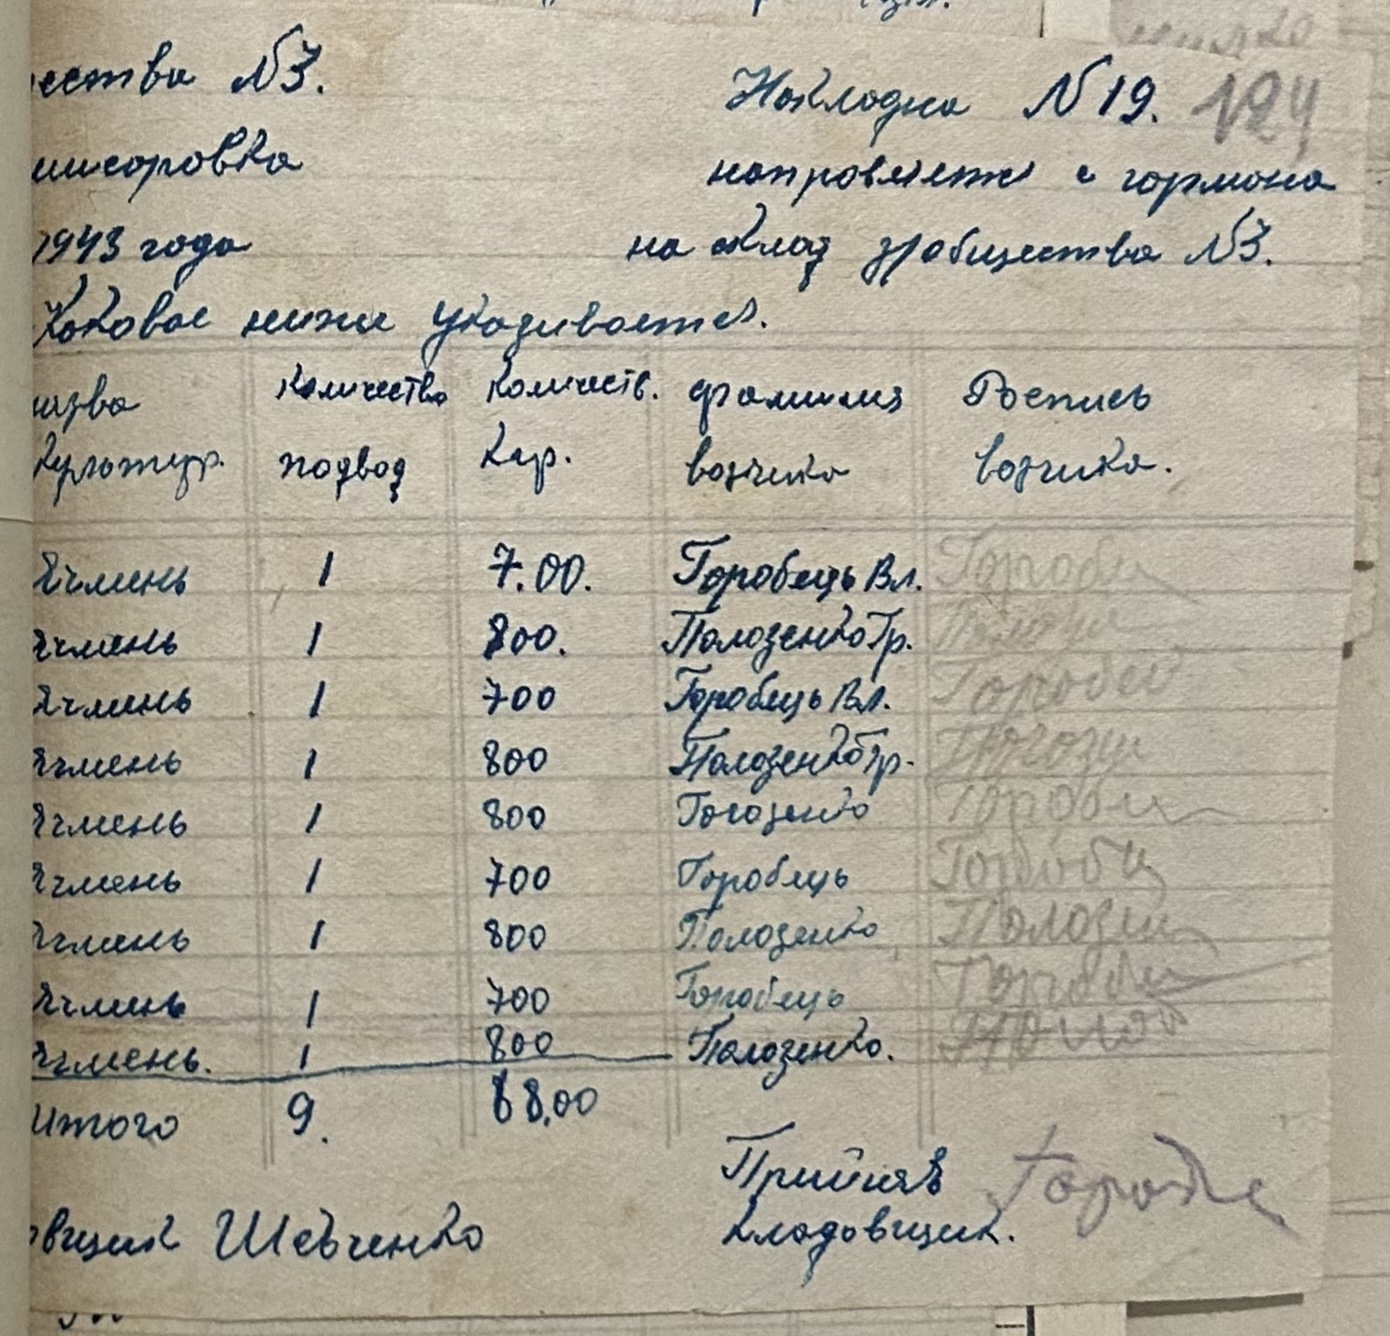 ества №3.
Накладна №19. 124
шисоровка
направляется с гармана
1943 года
на склад з/общества №3.
Каковое ниже указивается.
назва Количество Количеств. фамилия Роспись
Культур. подвод Кгр. возчика возчика.
Ячмень 1 7.00. Горобець Вл. Горобец
Ячмень 1 800. Полозенко Гр.
Ячмень 1 700 Горобець Вл. Горобец
Ячмень 1 800 Полозенко Гр.
Ячмень 1 800 Погозенко Горобец
Ячмень 1 700 Горобець Горобец
Ячмень 1 800 Полозенко Полозен
Ячмень 1 700 Горобець Горобец
Ячмень. 1 800 Полозенко.
Итого 9. 68,00
Прийняв
овщик Шевченко
кладовщик.